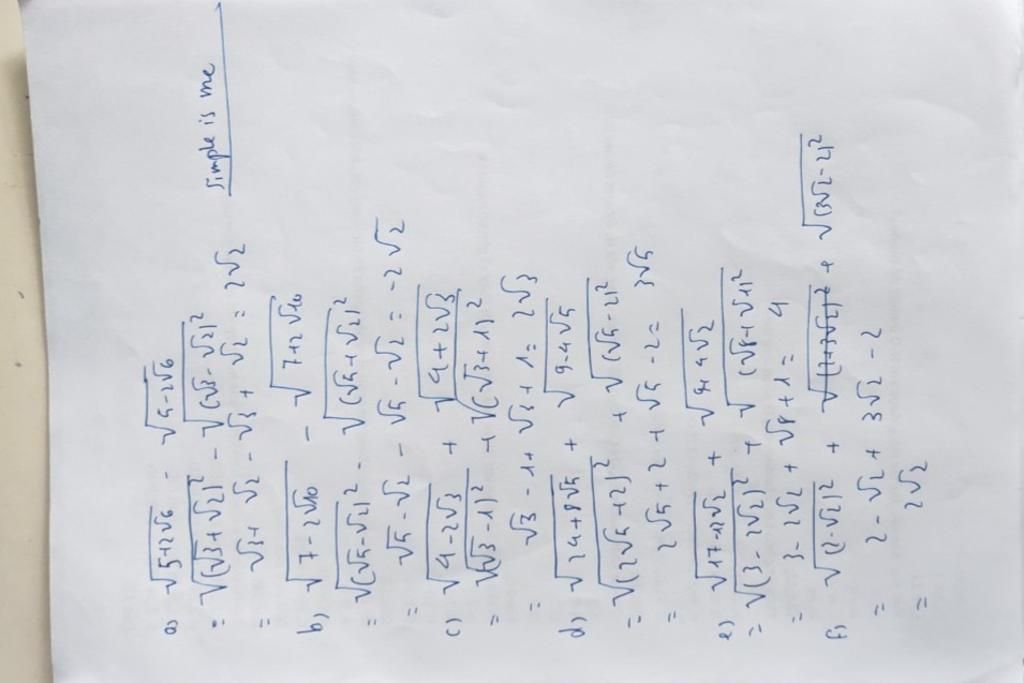 Simple is me
a) √5+2√6 - √5-2√6
= √(√3+√2)² - √(√3-√2)²
= √3+√2 - √3+√2 = 2√2
b) √7-2√10 - √7+2√10
= √(√5-√2)² - √(√5+√2)²
= √5-√2 - √5-√2 = -2√2
c) √4-2√3 + √4+2√3
= √(√3-1)² + √(√3+1)²
= √3-1+√3+1 = 2√3
d) √24+8√5 + √9-4√5
= √(2√5+2)² + √(√5-2)²
= 2√5+2+√5-2 = 3√5
e) √17-12√2 + √9+4√2
= √(3-2√2)² + √(√8+√1)²
= 3-2√2+√8+1 = 4
f) √(2-√2)² + √(3√2-2)²
= 2-√2+3√2-2
= 2√2